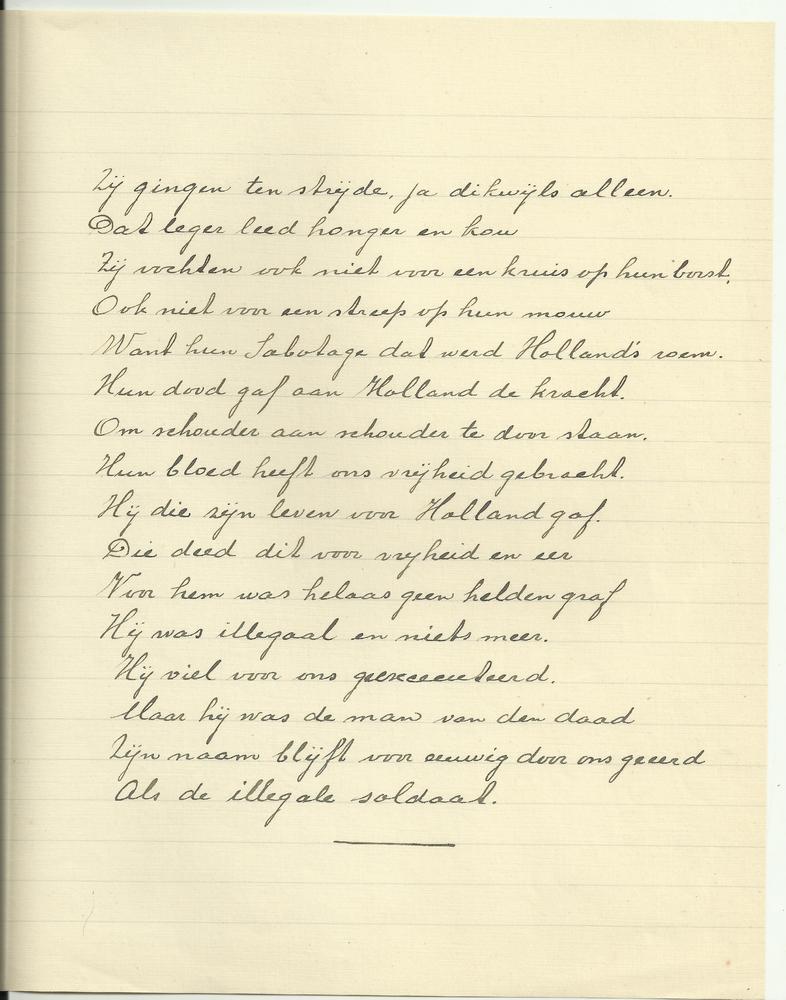 Zij gingen ten strijde, ja dikwijls alleen.
Dat leger leed honger en kou
Zij vochten ook niet voor een kruis op hun borst,
Ook niet voor een streep op hun mouw
Want hun Sabotage dat werd Holland's roem.
Hun dood gaf aan Holland de kracht.
Om schouder aan schouder te door staan.
Hun bloed heeft ons vrijheid gebracht.
Hij die zijn leven voor Holland gaf.
Die deed dit voor vrijheid en eer
Voor hem was helaas geen helden graf
Hij was illegaal en niets meer.
Hij viel voor ons geexecuteerd.
Maar hij was de man van den daad
Zijn naam blijft voor eeuwig door ons geeerd
Als de illegale soldaat.